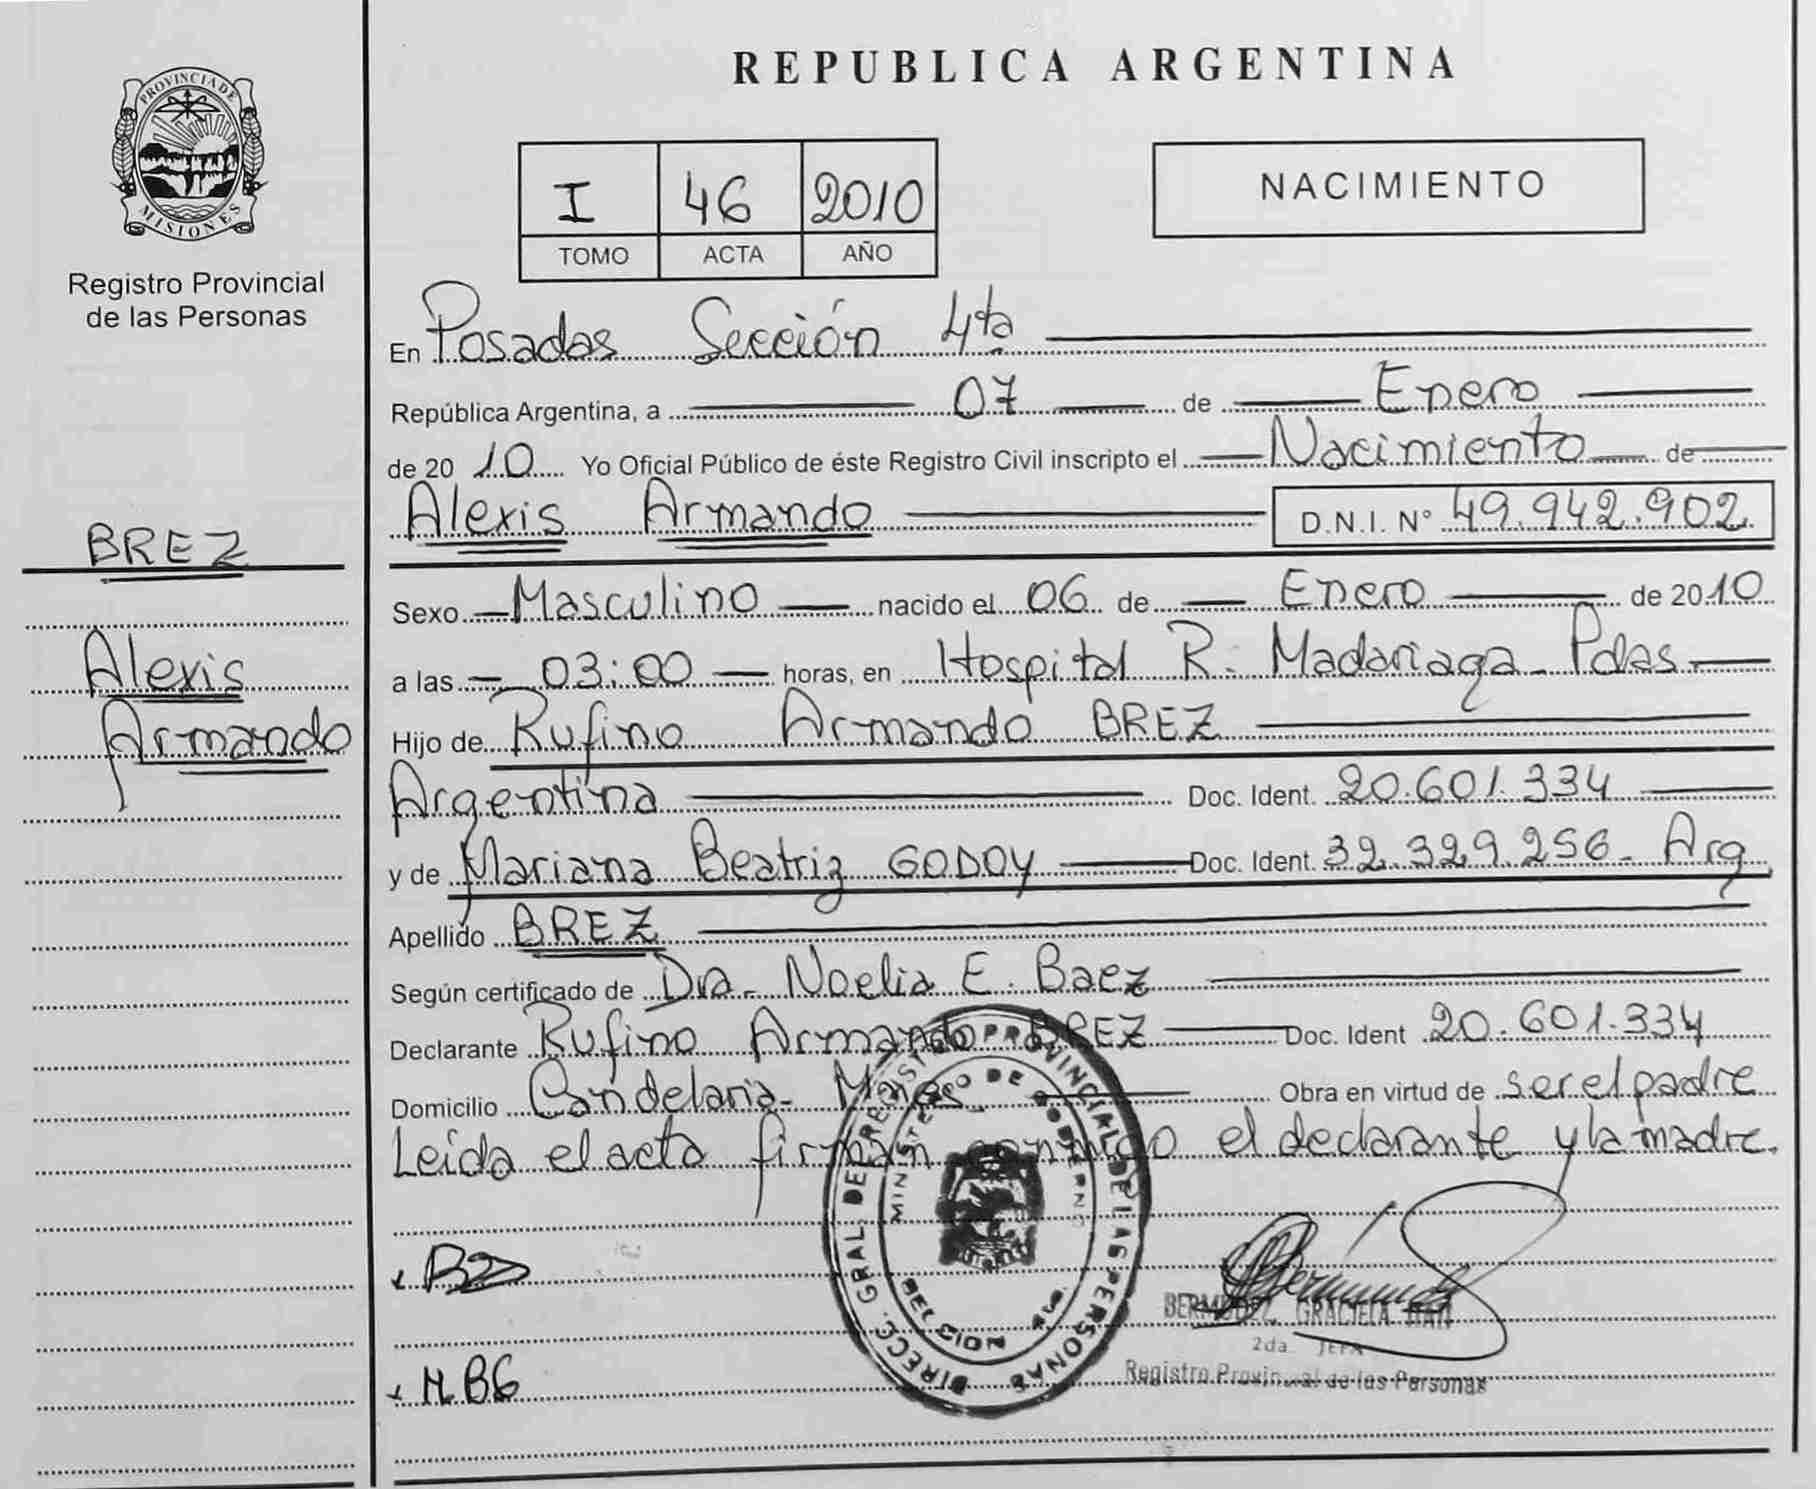 PROVINCIA DE
MISIONES
Registro Provincial
de las Personas
BREZ
Alexis
Armando
REPUBLICA ARGENTINA
I 46 2010
TOMO ACTA AÑO
NACIMIENTO
En Posadas Sección 4ta
República Argentina, a 07 de Enero
de 2010 Yo Oficial Público de éste Registro Civil inscripto el Nacimiento de
Alexis Armando D.N.I. N° 49.942.902
Sexo Masculino nacido el 06 de Enero de 2010
a las 03:00 horas, en Hospital R. Madariaga - Pdas
Hijo de Rufino Armando BREZ
Argentina Doc. Ident. 20.601.334
y de Mariana Beatriz GODOY Doc. Ident. 32.329.256 - Arg
Apellido BREZ
Según certificado de Dra. Noelia E. Baez
Declarante Rufino Armando BREZ Doc. Ident 20.601.334
Domicilio Candelaria - Mnes Obra en virtud de ser el padre
Leída el acta firman conmigo el declarante y la madre.
DIRECC. GRAL. DE REGISTRO PROVINCIAL DE LAS PERSONAS
MINISTERIO DE GOBIERNO
MBG
BERMUDEZ, GRACIELA
2da. JEFA
Registro Provincial de las Personas